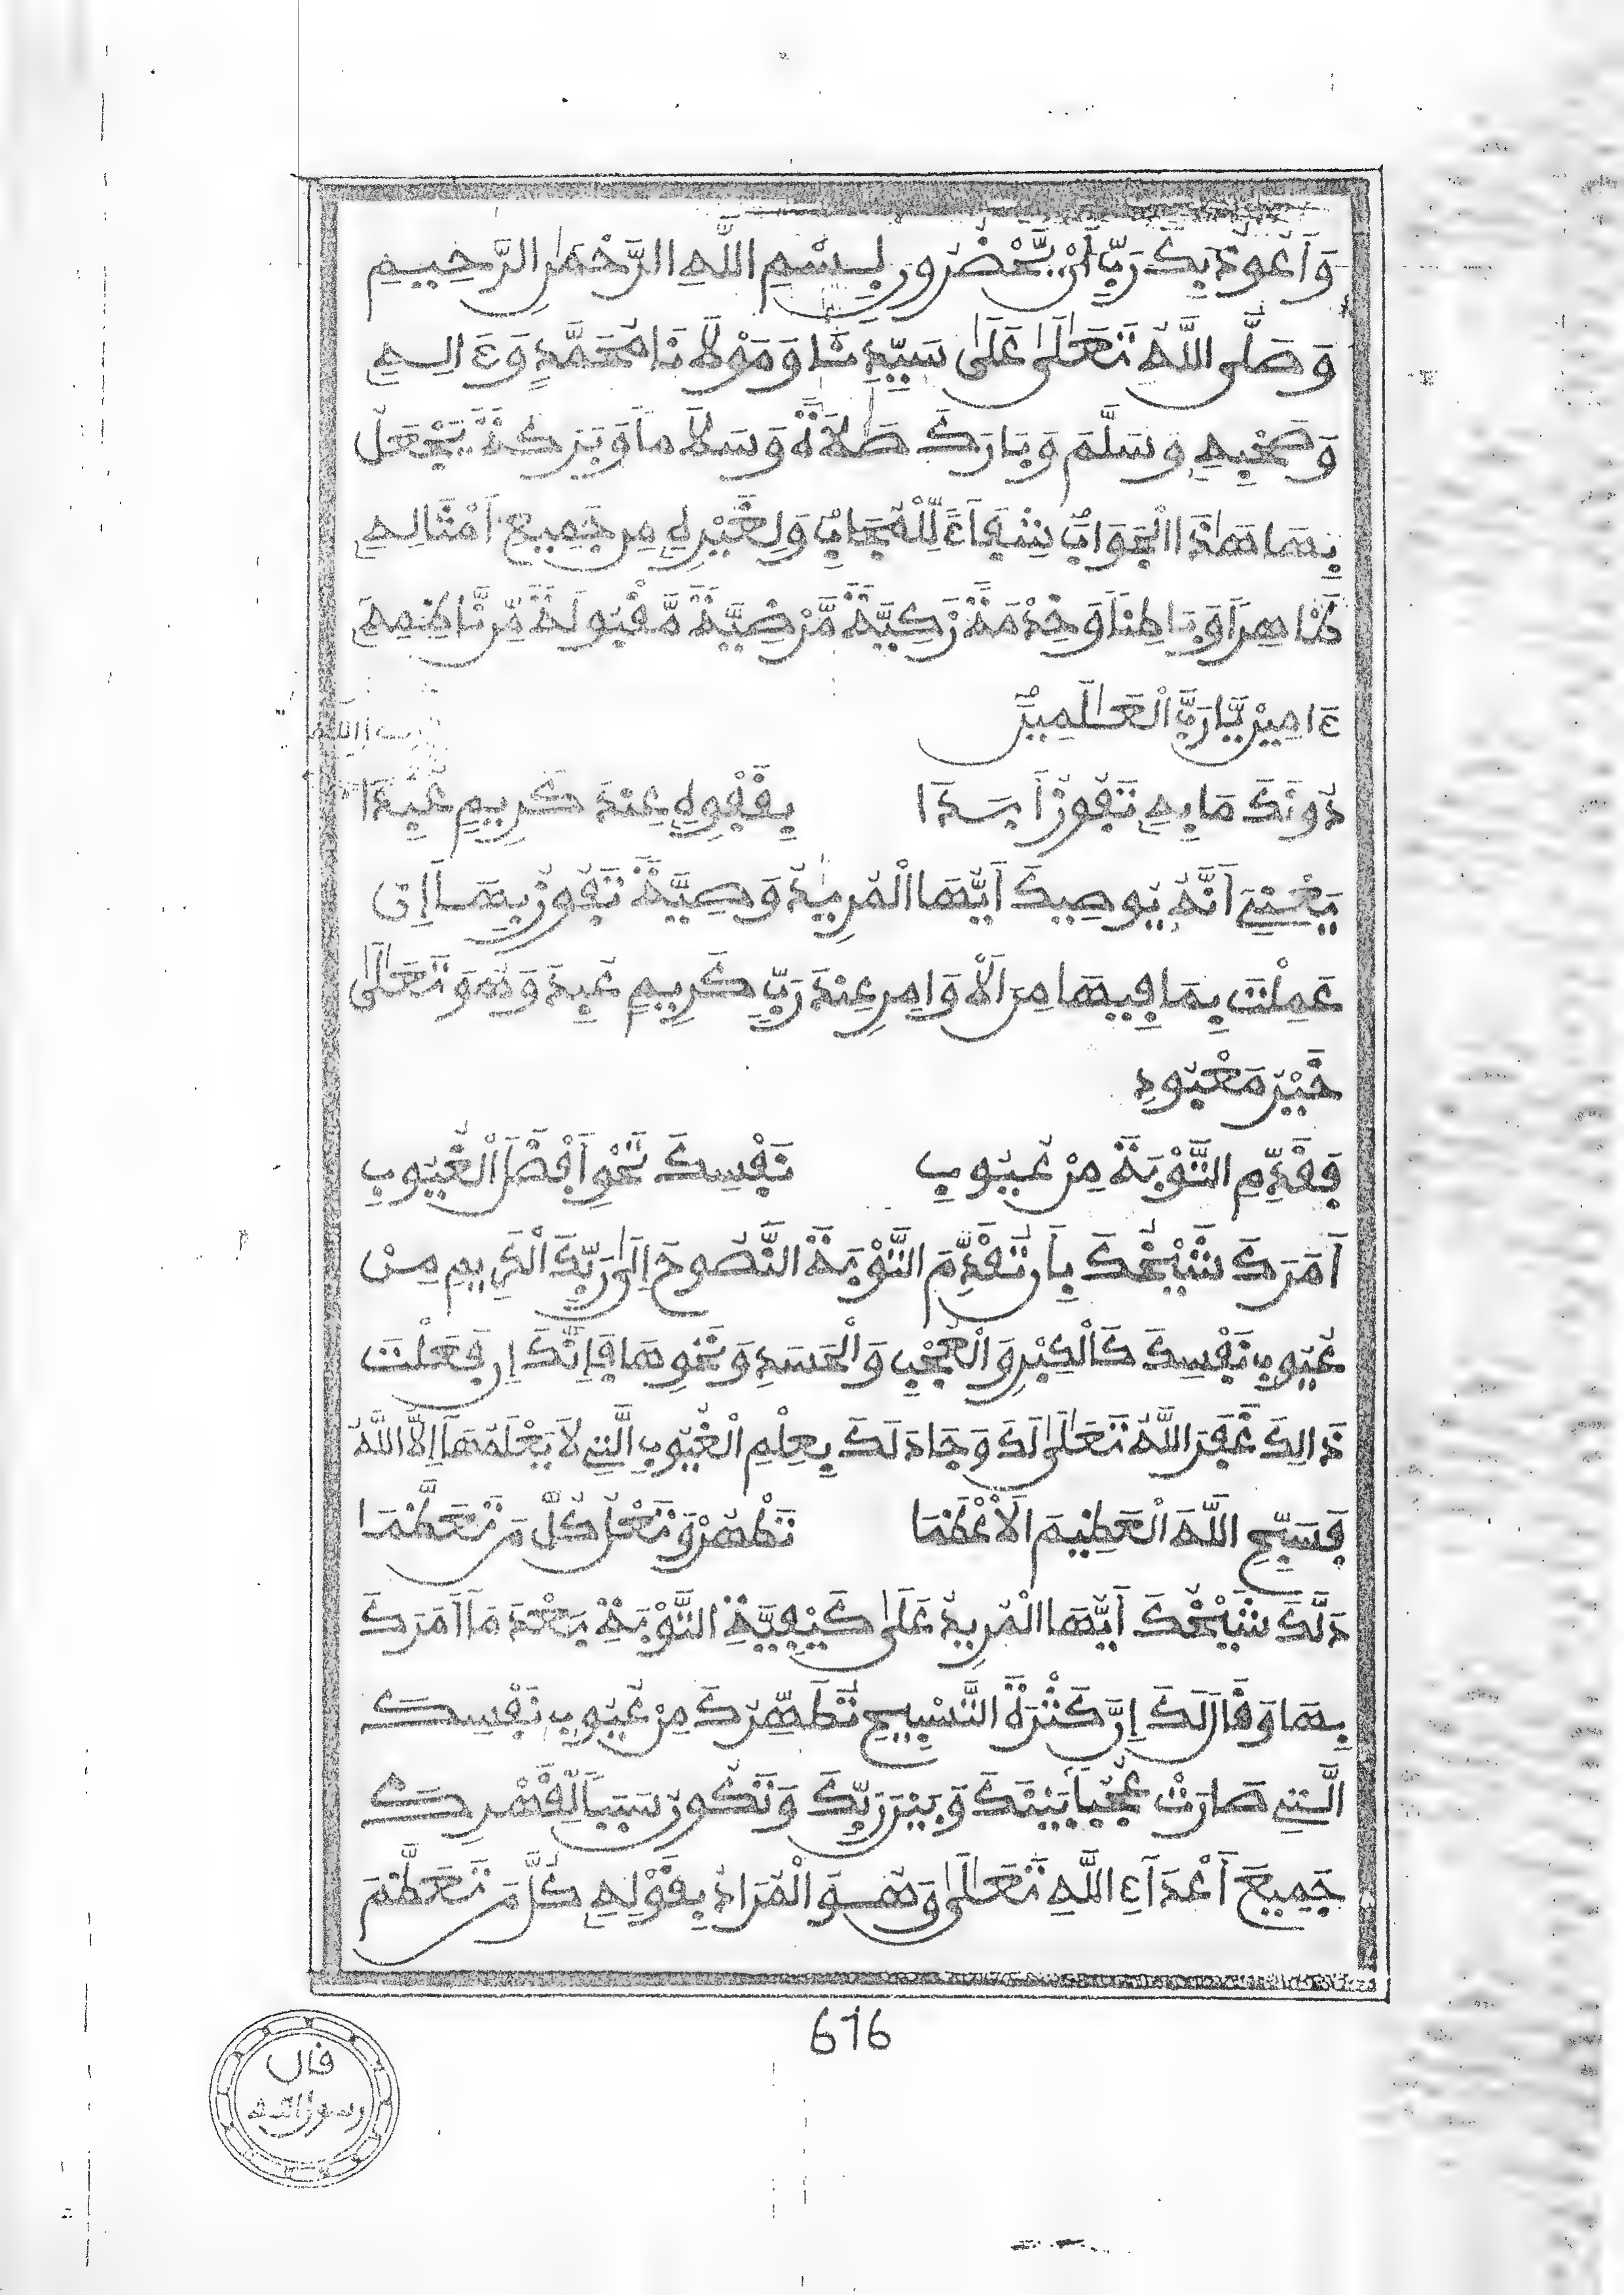 وَأَعُوذُ بِكَ رَبِّ أَنْ يَّحْضُرُونِ بِسْمِ اللَّهِ الرَّحْمَٰنِ الرَّحِيمِ
وَصَلَّى اللَّهُ تَعَالَىٰ عَلَىٰ سَيِّدِنَا وَمَوْلَانَا مُحَمَّدٍ وَءَالِهِ
وَصَحْبِهِ وَسَلَّمَ وَبَارَكَ صَلَاةً وَسَلَامًا وَبَرَكَةً يَجْعَلُ
بِهَا هَٰذَا الْجَوَابَ شِفَاءً لِّلْمُجَابِ وَلِغَيْرِهِ مِن جَمِيعِ أَمْثَالِهِ
ظَاهِرًا وَبَاطِنًا وَخِدْمَةً زَكِيَّةً مَّرْضِيَّةً مَّقْبُولَةً مِّن نَّاظِمِهِ
ءَامِين يَّا رَبَّ الْعَٰلَمِينَ
دُونَكَ مَا بِهِ تَفُوزُ أَبَدَا
بِقَفْوِهِ عِنْدَ كَرِيمٍ عُبِدَا
يَعْنِي أَنَّهُ يُوصِيكَ أَيُّهَا الْمُرِيدُ وَصِيَّةً تَفُوزُ بِهَا إِن
عَمِلْتَ بِمَا فِيهَا مِنَ الْأَوَامِرِ عِنْدَ رَبٍّ كَرِيمٍ عُبِدَ وَهُوَ تَعَالَىٰ
خَيْرُ مَعْبُودٍ
فَقَدِّمِ التَّوْبَةَ مِنْ عُيُوبِ
نَفْسِكَ نَحْوَ أَفْضَلِ الْغُيُوبِ
أَمَرَكَ شَيْخُكَ بِأَن تُقَدِّمَ التَّوْبَةَ النَّصُوحَ إِلَىٰ رَبِّكَ الْكَرِيمِ مِنْ
عُيُوبِ نَفْسِكَ كَالْكِبْرِ وَالْعُجْبِ وَالْحَسَدِ وَنَحْوِهَا فَإِنَّكَ إِن فَعَلْتَ
ذَالِكَ غَفَرَ اللَّهُ تَعَالَىٰ لَكَ وَجَادَ لَكَ بِعِلْمِ الْغُيُوبِ الَّتِي لَا يَعْلَمُهَا إِلَّا اللَّهُ
فَسَبِّحِ اللَّهَ الْعَظِيمَ الْأَعْظَمَا
تَطْهُرْ وَتَعْلُ كُلَّ مَن تَعَظَّمَا
دَلَّكَ شَيْخُكَ أَيُّهَا الْمُرِيدُ عَلَىٰ كَيْفِيَّةِ التَّوْبَةِ بَعْدَ مَا أَمَرَكَ
بِهَا وَقَالَ لَكَ إِنَّ كَثْرَةَ التَّسْبِيحِ تُطَهِّرُكَ مِنْ عُيُوبِ نَفْسِكَ
الَّتِي صَارَتْ حُجُبًا بَيْنَكَ وَبَيْنَ رَبِّكَ وَتَكُونُ سَبَبًا لِّقَهْرِكَ
جَمِيعَ أَعْدَآءِ اللَّهِ تَعَالَىٰ وَهُوَ الْمُرَادُ بِقَوْلِهِ كُلَّ مَن تَعَظَّمَ
616
قال
رسول الله